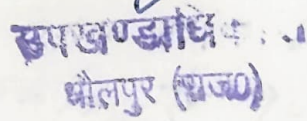 उपखण्डाधि
धौलपुर (राज०)